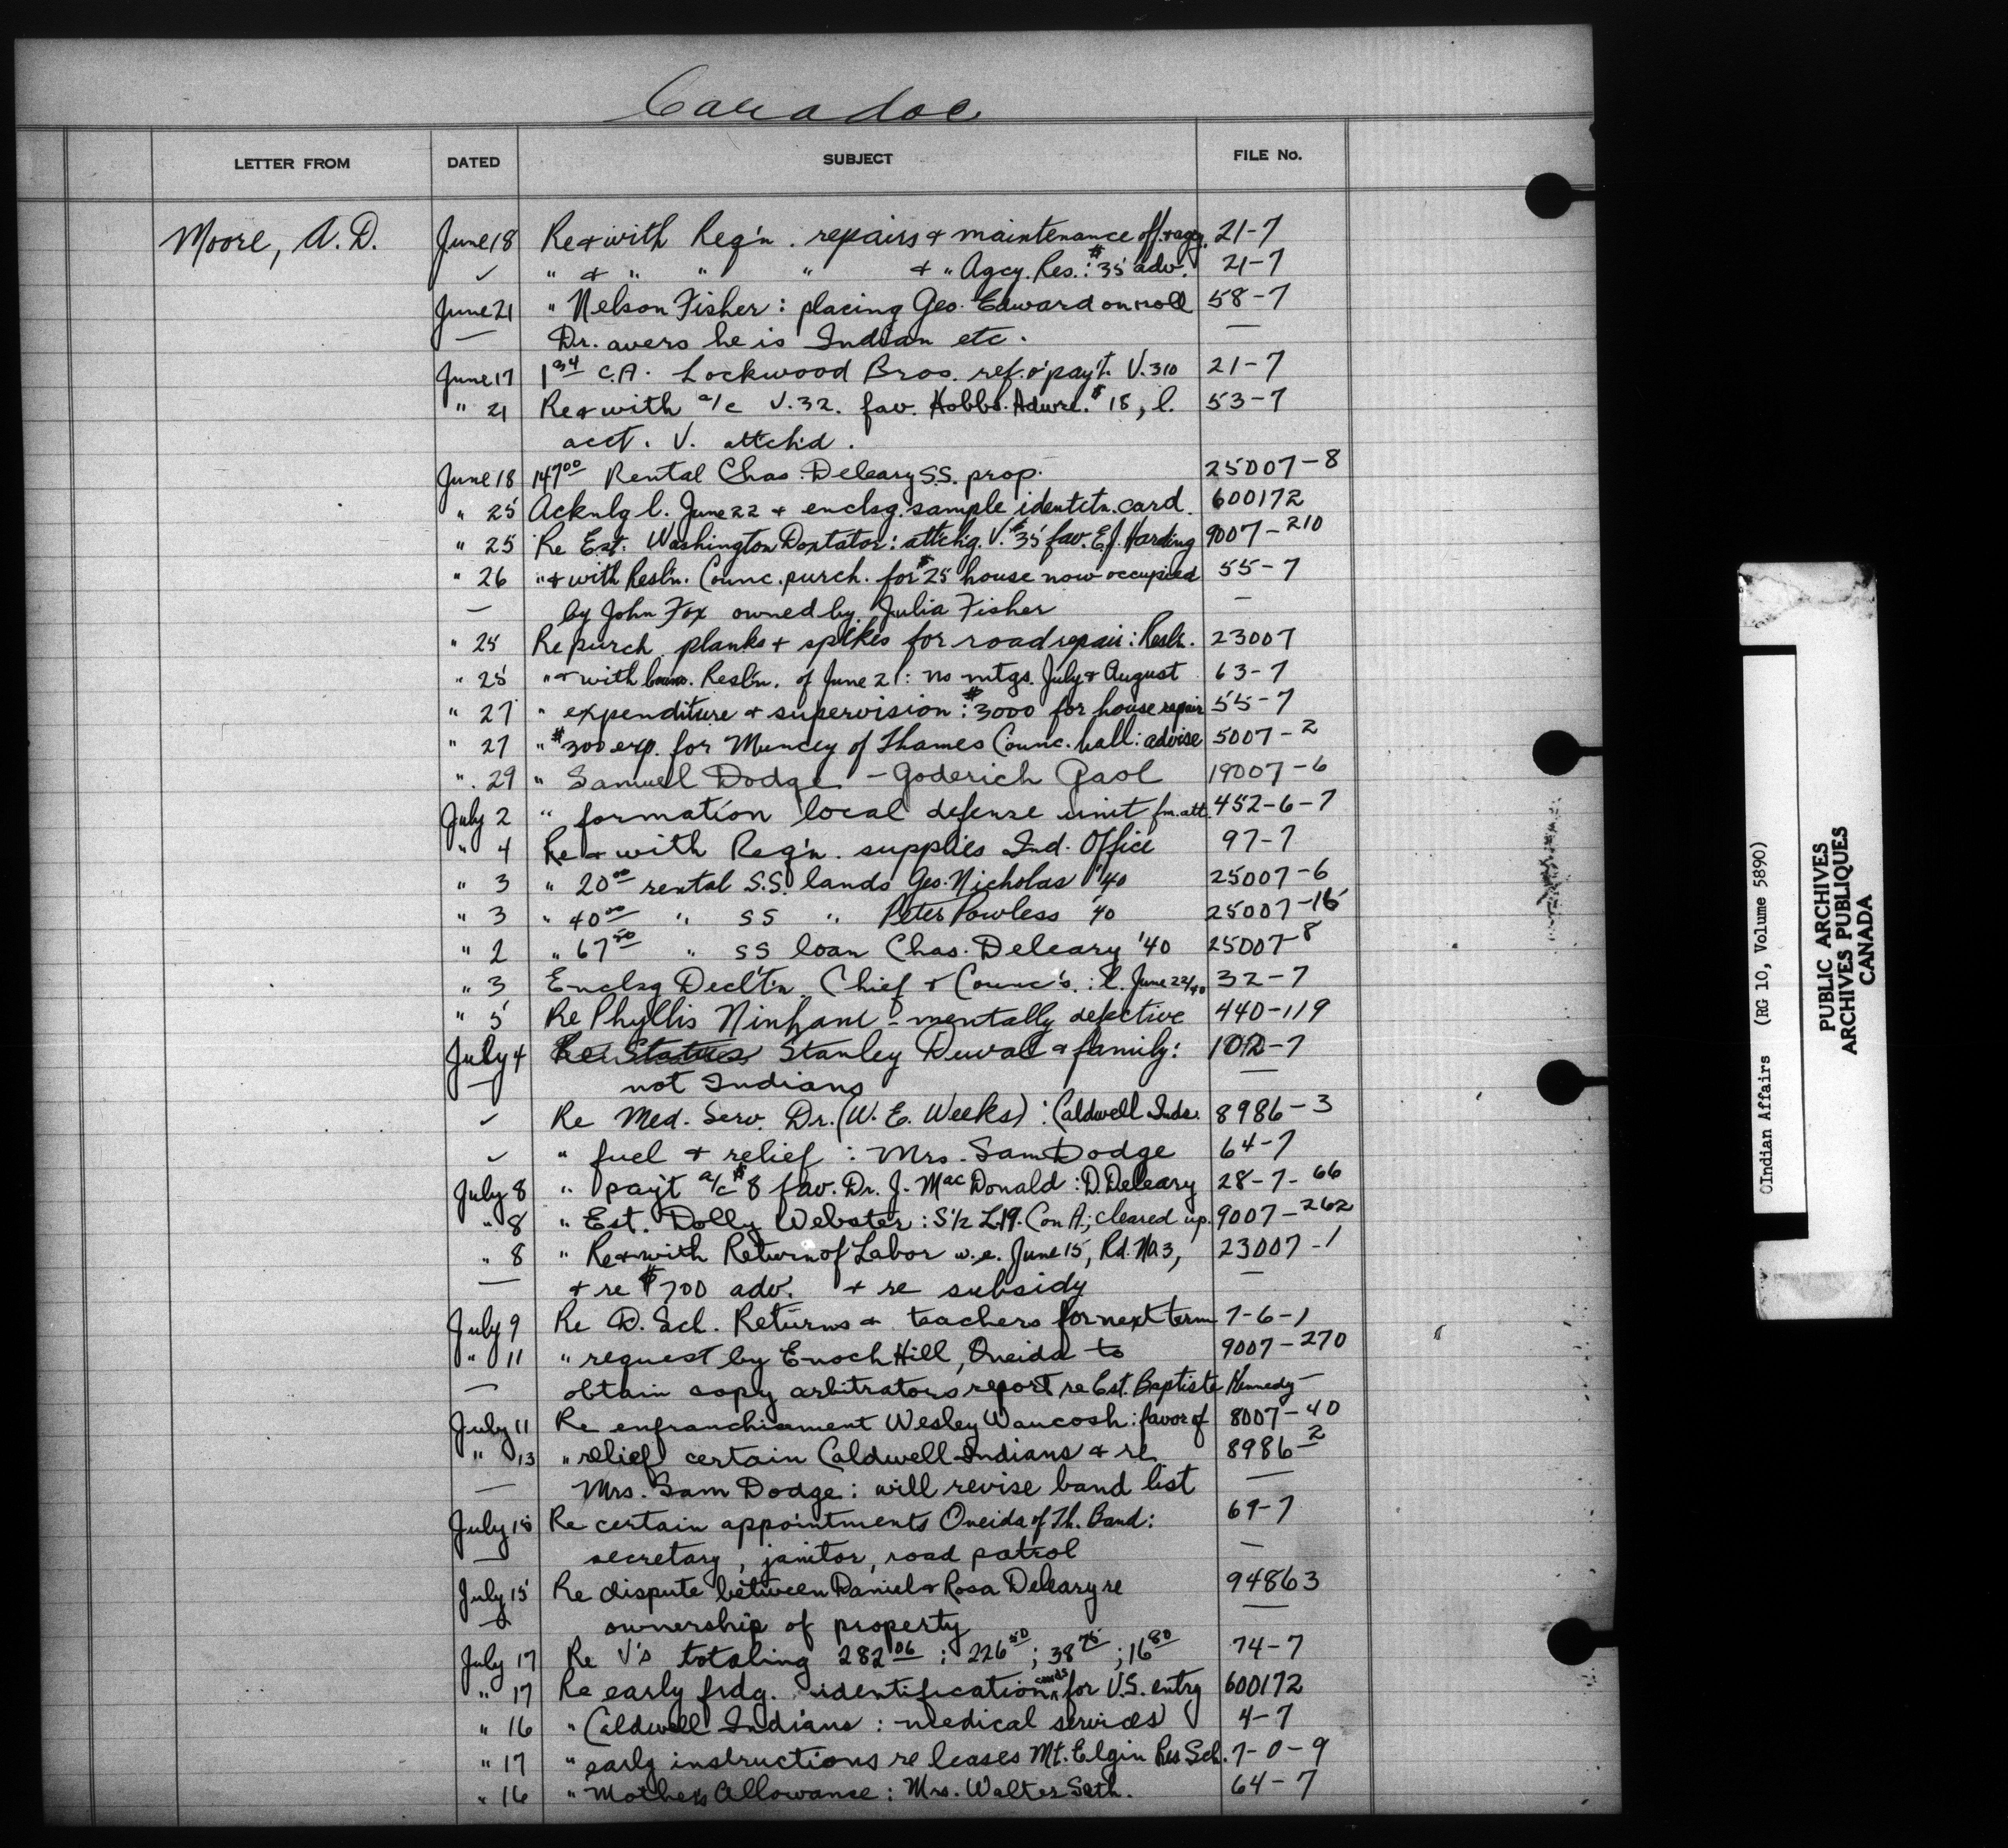 Caradoc
LETTER FROM DATED SUBJECT FILE No.
Moore, A.D. June 18 Re & with Reg'n. repairs & maintenance off. & agcy. 21-7
✓ " & " " " & " Agcy. Res. : $35 adv. 21-7
June 21 " Nelson Fisher : placing Geo. Edward on roll 58-7
— Dr. avers he is Indian etc. —
June 17 C.A. Lockwood Bros. ref. o' pay't. V. 310 21-7
" 21 Re & with a/c V. 32. fav. Hobbs Hdwre. $18, l. 53-7
acct. V. attch'd.
June 18 147 00 Rental Chas. Deleary S.S. prop. 25007-8
" 25 Acknlg l. June 22 & enclsg. sample identctn. card. 600172
" 25 Re Est. Washington Doxtator : attchg. V. $35 fav. E.J. Harding 9007-210
" 26 " & with Resl'n. Counc. purch. for $25 house now occupied 55-7
— by John Fox owned by Julia Fisher —
" 25 Re purch. planks & spikes for road repair : Resln. 23007
" 25 " & with Resl'n. of June 21 : no mtgs. July & August 63-7
" 27 " expenditure & supervision : $3000 for house repair 55-7
" 27 " $300 exp. for Muncey of Thames Counc. hall : advise 5007-2
" 29 " Samuel Dodge - Goderich Gaol 19007-6
July 2 " formation local defense unit fm. att. 452-6-7
" 4 Re & with Reg'n. supplies Ind. Office 97-7
" 3 " 20 00 rental S.S. lands Geo. Nicholas '40 25007-6
" 3 " 40 00 " SS " Peter Powless '40 25007-16
" 2 " 67 50 " SS loan Chas. Deleary '40 25007-8
" 3 Enclsg Declt'n Chief & Counc's. : l. June 22/40 32-7
" 5 Re Phyllis Ninham - mentally defective 440-119
July 4 Re Status Stanley Duval & family : 102-7
— not Indians —
✓ Re Med. Serv. Dr. (W. E. Weeks) : Caldwell Inds. 8986-3
✓ " fuel & relief : Mrs. Sam Dodge 64-7
July 8 " pay't a/c $8 fav. Dr. J. MacDonald : D. Deleary 28-7-66
" 8 " Est. Dolly Webster : S 1/2 L. 19. Con A ; cleared up. 9007-262
" 8 " Re & with Return of Labor w.e. June 15, Rd. No. 3, 23007-1
— & re $700 adv. & re subsidy —
July 9 Re D. Sch. Returns & teachers for next term 7-6-1
" 11 " request by Enoch Hill, Oneida to 9007-270
— obtain copy arbitrators report re Est. Baptiste Kennedy —
July 11 Re enfranchisement Wesley Waucosh : favor of 8007-40
" 13 " relief certain Caldwell Indians & re 8986-2
— Mrs. Sam Dodge : will revise band list —
July 15 Re certain appointments Oneida of Th. Band : 69-7
— secretary, janitor, road patrol —
July 15 Re dispute between Daniel & Rosa Deleary re 94863
— ownership of property —
July 17 Re V's totaling 282 06 : 226 50 ; 38 75 ; 16 80 74-7
" 17 Re early frdg. identification cards for U.S. entry 600172
" 16 " Caldwell Indians : medical services 4-7
" 17 " early instructions re leases Mt. Elgin Res Sch. 7-0-9
" 16 " Mothers Allowance : Mrs. Walter Seth. 64-7
©Indian Affairs (RG 10, Volume 5890)
PUBLIC ARCHIVES
ARCHIVES PUBLIQUES
CANADA